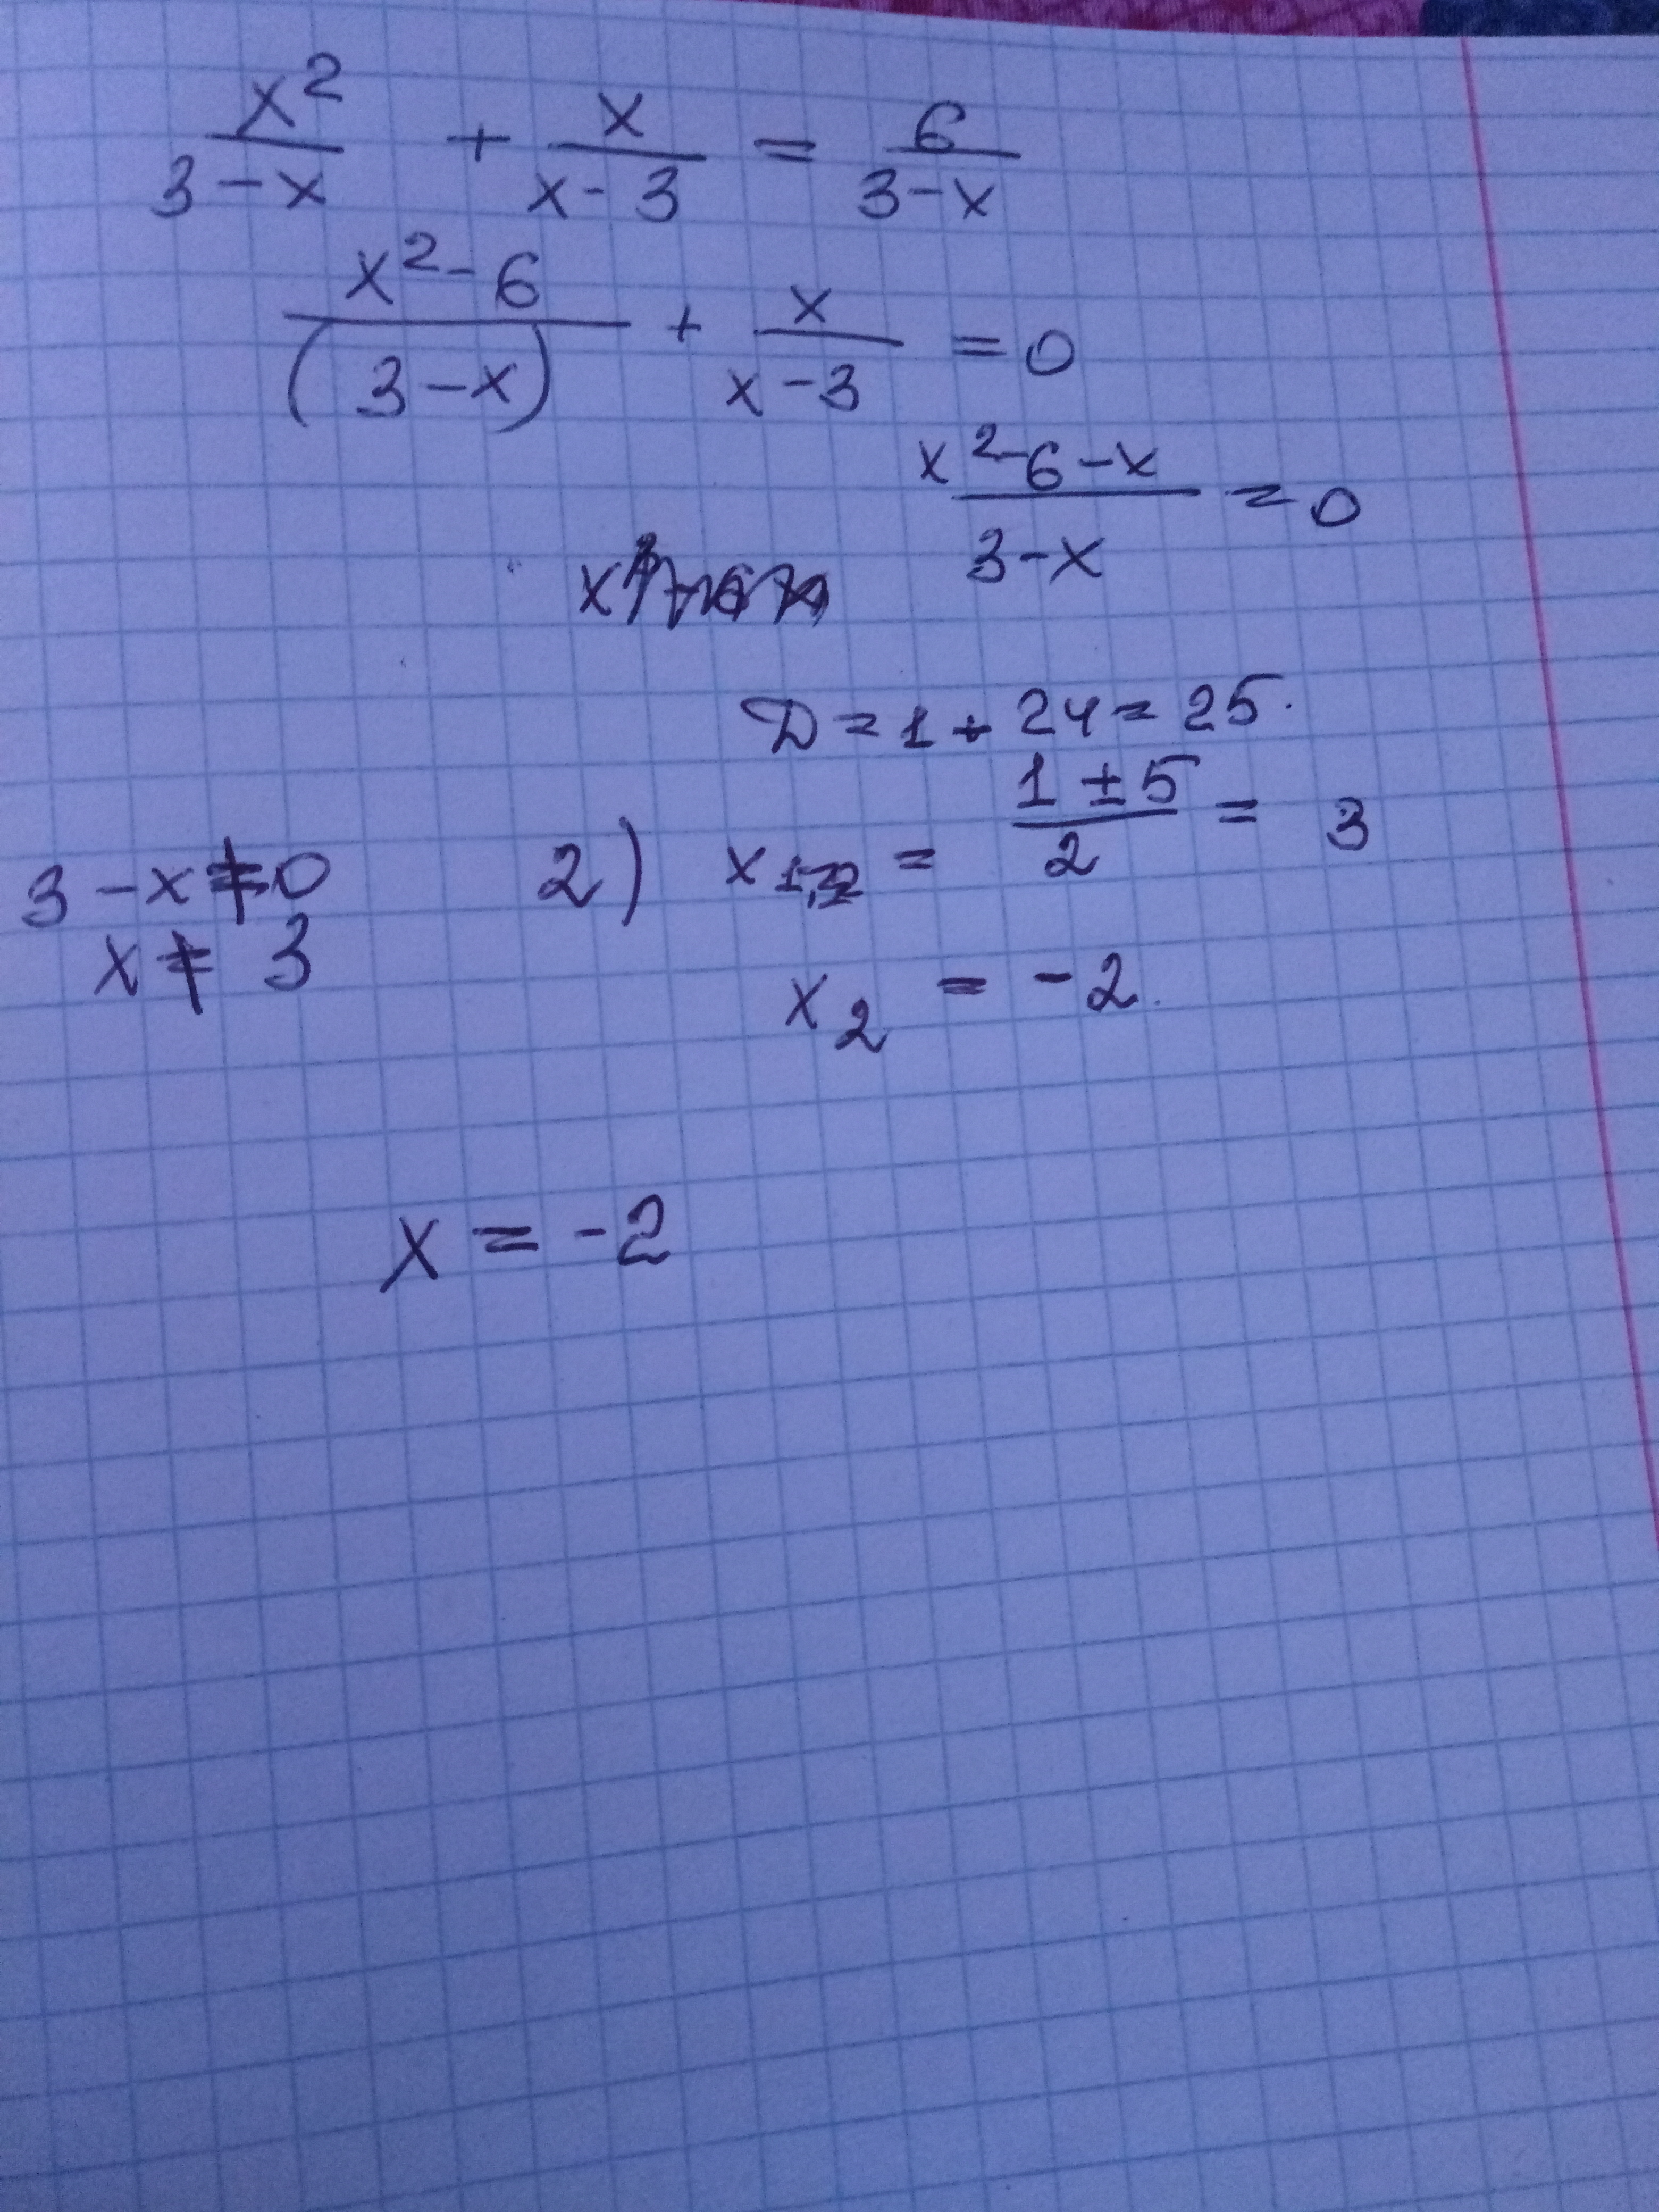 x² / (3 - x) + x / (x - 3) = 6 / (3 - x)
(x² - 6) / (3 - x) + x / (x - 3) = 0
(x² - 6 - x) / (3 - x) = 0
Д = 1 + 24 = 25.
3 - x ≠ 0
x ≠ 3
2) x₁,₂ = (1 ± 5) / 2 = 3
x₂ = -2.
x = -2